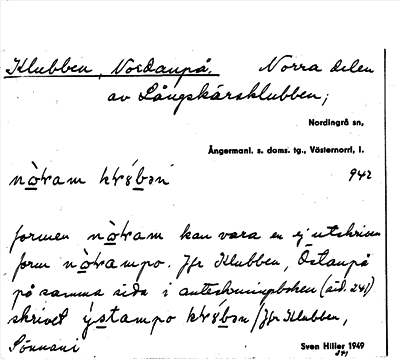 Klubben, Nordanpå. Norra delen
av Långskärsklubben;
Nordingrå sn,
Ångermanl. s. doms. tg., Västernorrl. l.
942
formen kan vara en ej utskriven
form Jfr Klubben, Östanpå
på samma sida i anteckningsboken (sid. 241)
skrivet / Jfr Klubben,
Sönnani
Sven Hiller 1949
241